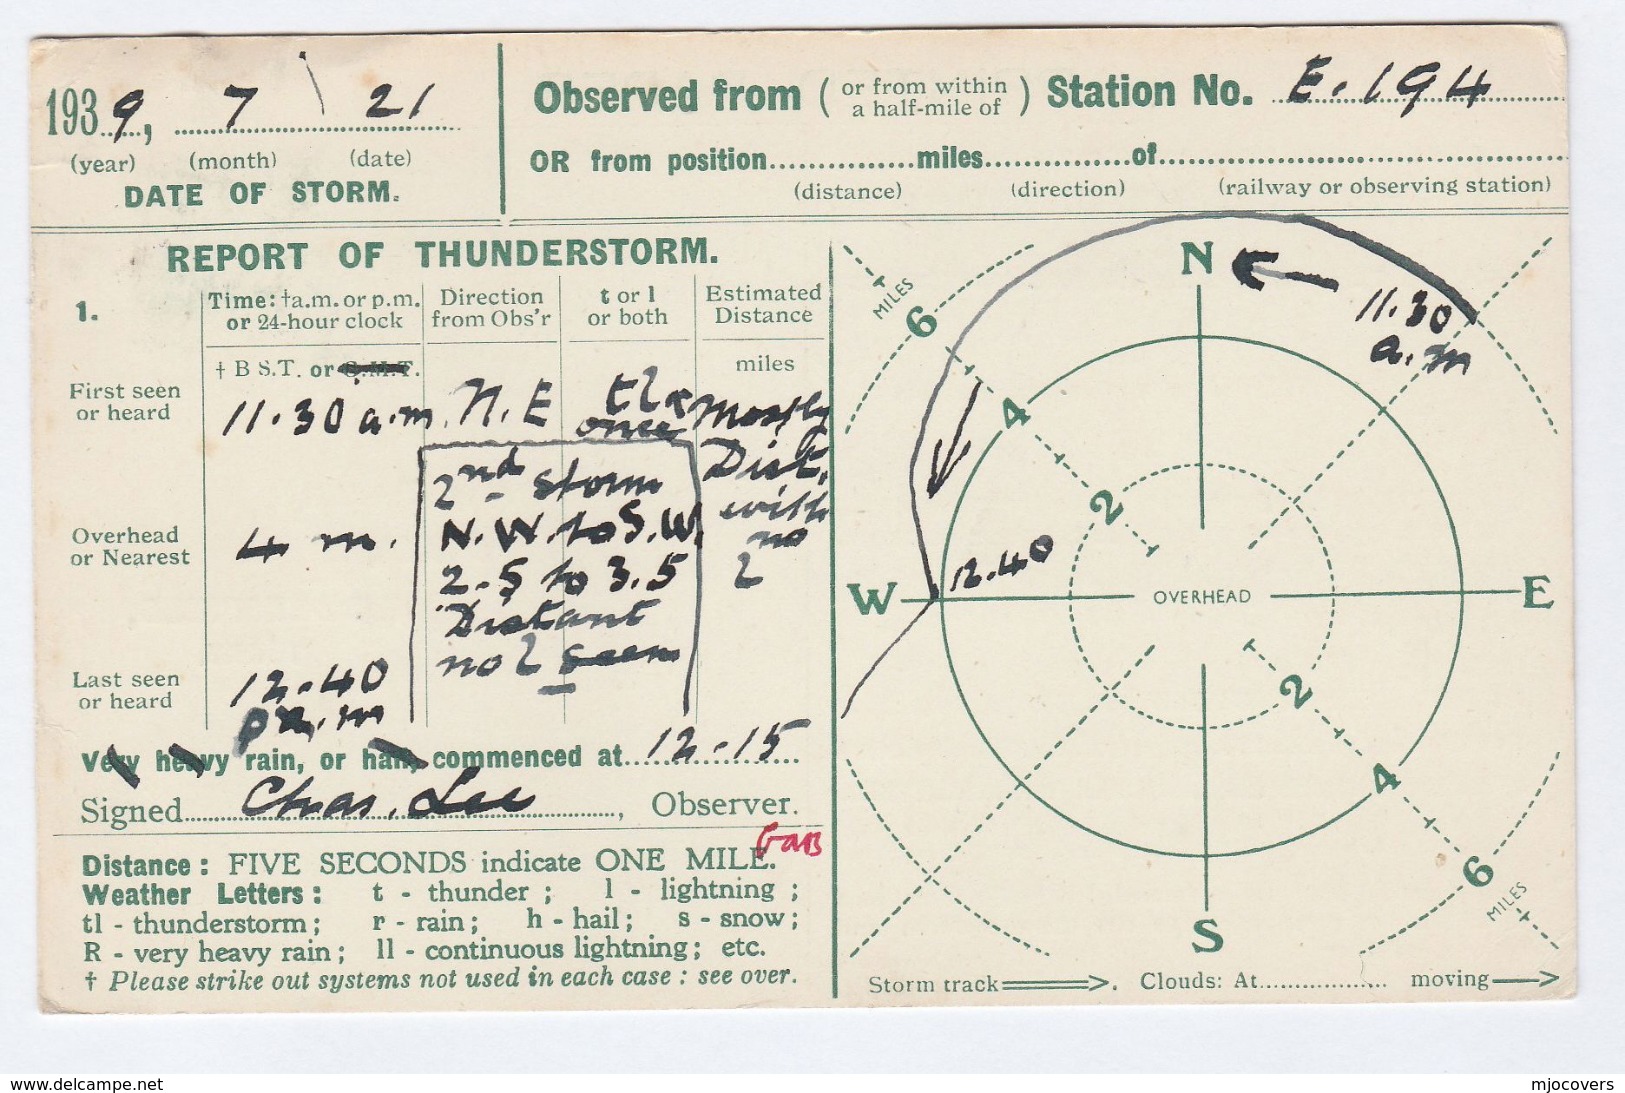 1939, 7 21
(year) (month) (date)
DATE OF STORM.
Observed from ( or from within a half-mile of ) Station No. E.194
OR from position...............miles...............of...............
(distance) (direction) (railway or observing station)
REPORT OF THUNDERSTORM.
1.
Time: †a.m. or p.m. or 24-hour clock
Direction from Obs'r
t or l or both
Estimated Distance
† B S.T. or G.M.T.
miles
First seen or heard
11.30 a.m.
N.E
tl once
mostly
Dist.
with
no
l
2nd storm
N.W. to S.W.
2.5 to 3.5
Distant
no l seen
Overhead or Nearest
4 m.
Last seen or heard
12.40
p.m
Very heavy rain, or hail, commenced at 12.15
Signed Chas. Lee, Observer.
GaB
Distance: FIVE SECONDS indicate ONE MILE.
Weather Letters: t - thunder; l - lightning;
tl - thunderstorm; r - rain; h - hail; s - snow;
R - very heavy rain; ll - continuous lightning; etc.
† Please strike out systems not used in each case : see over.
N
11.30
a.m
MILES
6
4
2
12.40
W
OVERHEAD
E
2
4
6
MILES
S
Storm track
Clouds: At.................. moving
www.delcampe.net
mjocovers